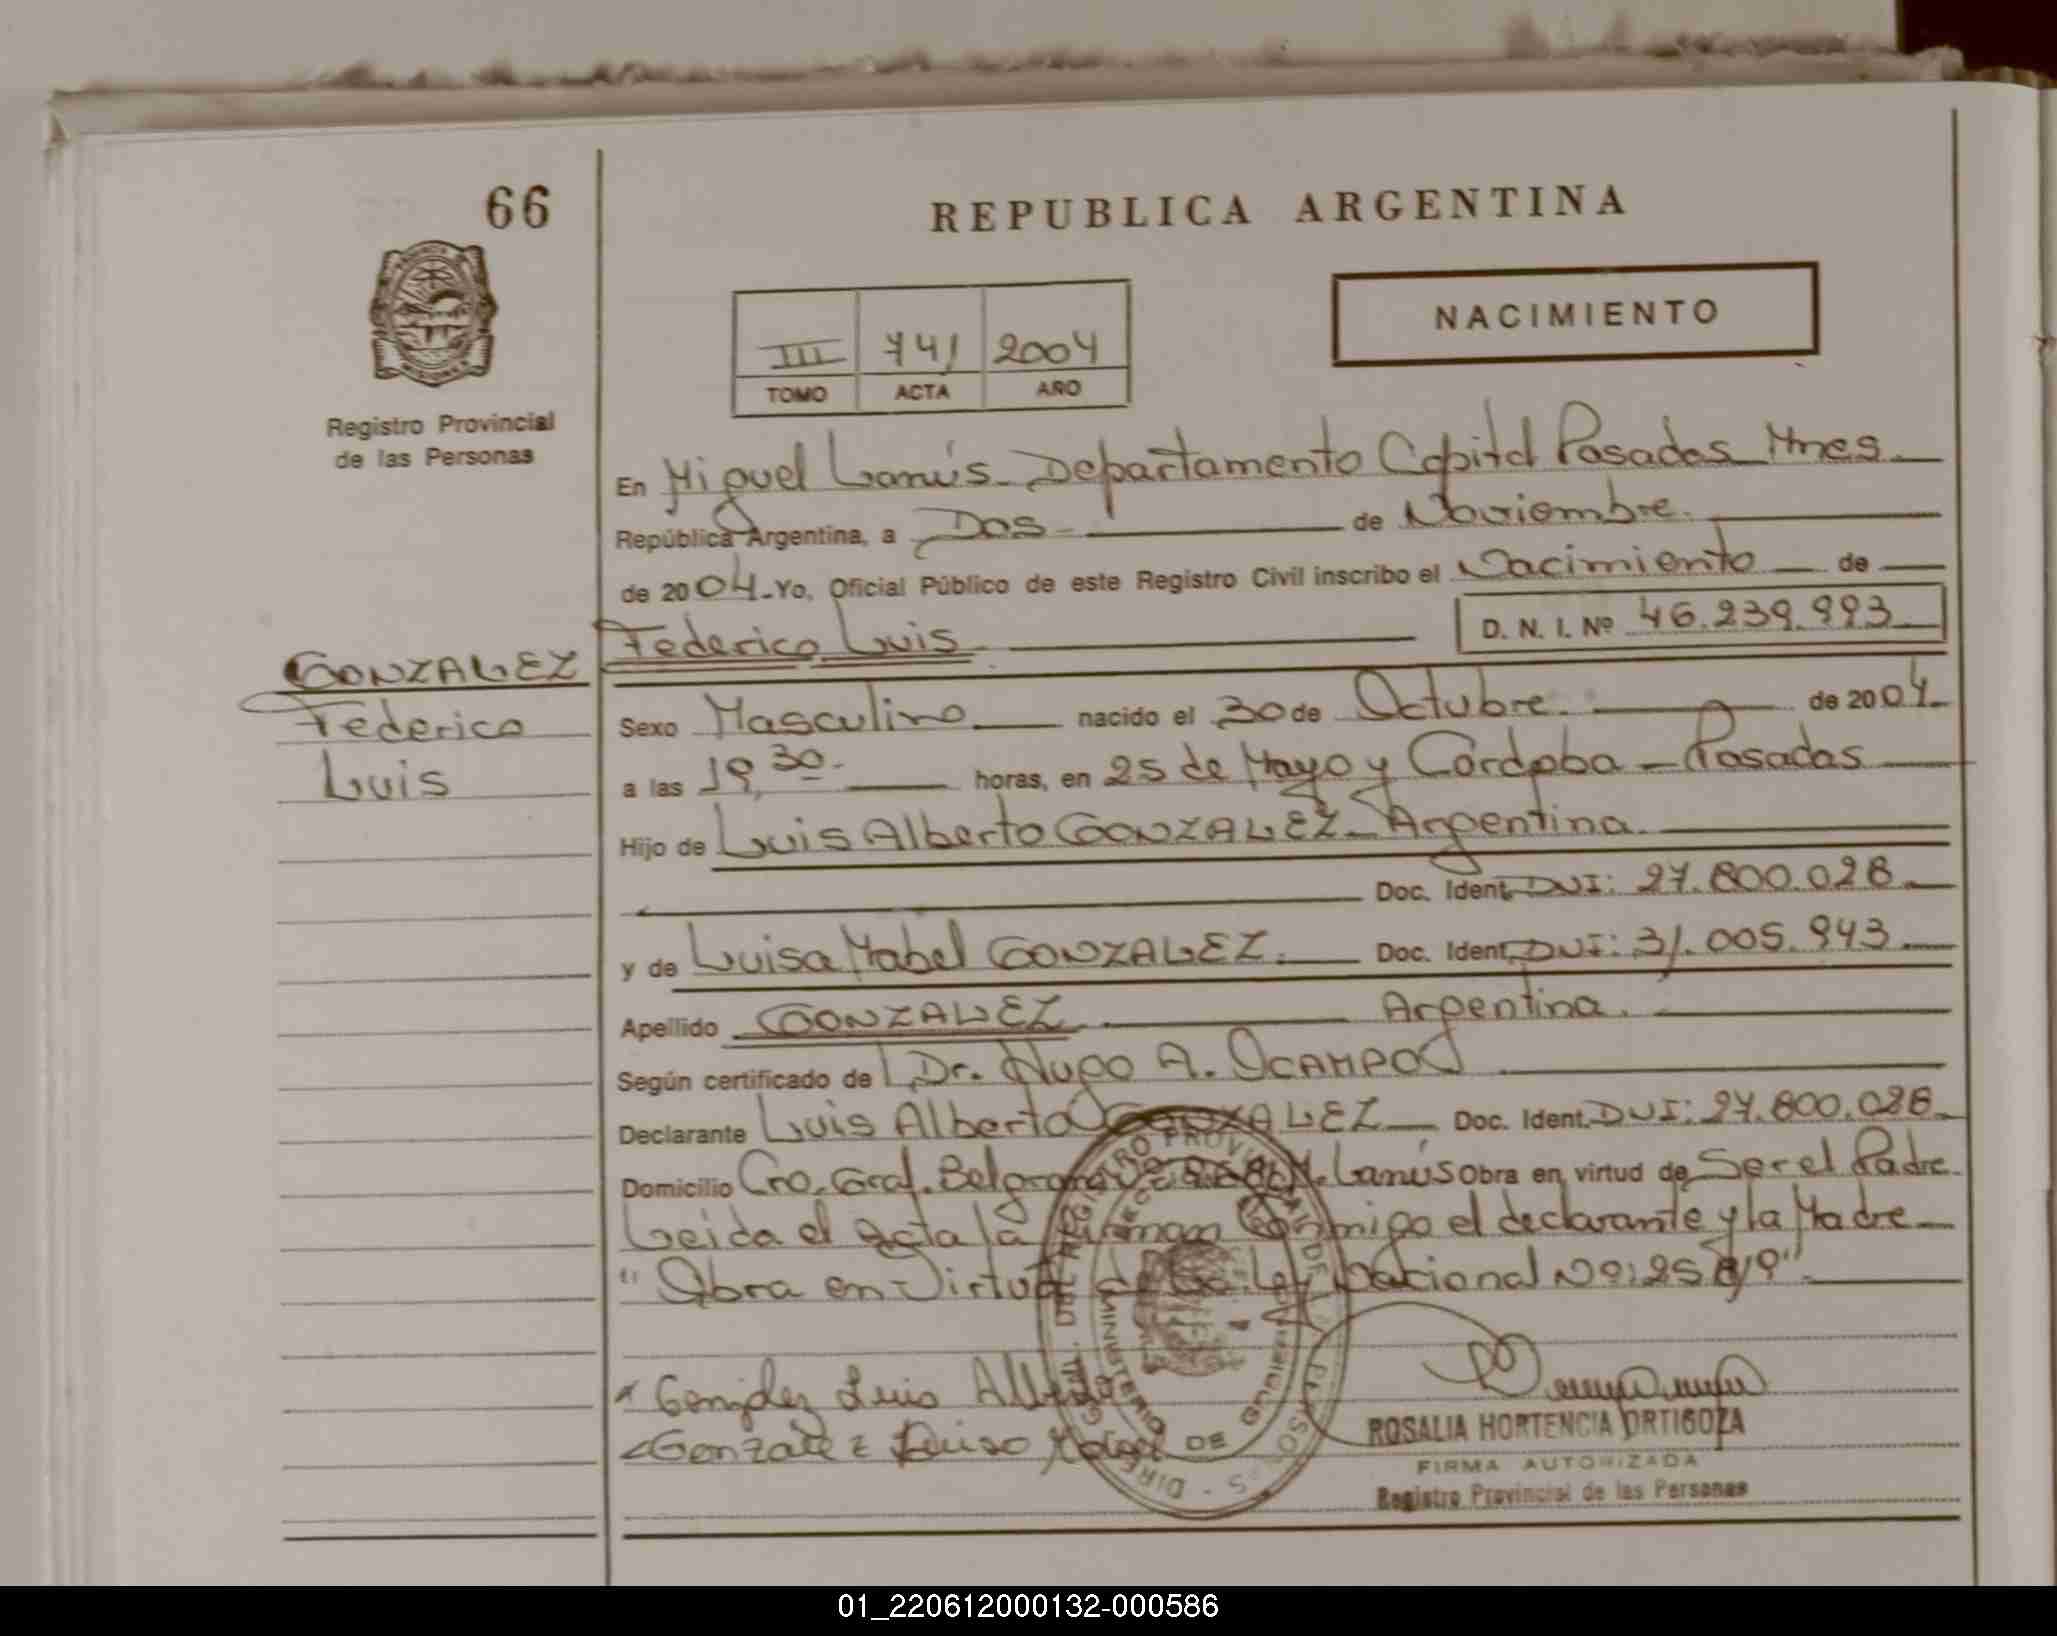 66
REPUBLICA ARGENTINA
NACIMIENTO
III 741 2004
TOMO ACTA AÑO
Registro Provincial
de las Personas
En Miguel Lanús - Departamento Capital Posadas Mnes.
República Argentina, a Dos de Noviembre.
de 2004. Yo, Oficial Público de este Registro Civil inscribo el Nacimiento de
Federico Luis D. N. I. Nº 46.239.993
GONZALEZ
Federico
Luis
Sexo Masculino nacido el 30 de Octubre. de 2004.
a las 19,30. horas, en 25 de Mayo y Córdoba - Posadas
Hijo de Luis Alberto GONZALEZ - Argentina.
Doc. Ident. DNI: 27.800.028
y de Luisa Mabel GONZALEZ. Doc. Ident. DNI: 31.005.943
Apellido GONZALEZ Argentina.
Según certificado de Dr. Hugo A. OCAMPO
Declarante Luis Alberto GONZALEZ Doc. Ident. DNI: 27.800.028
Domicilio Cro. Gral. Belgrano Lanús Obra en virtud de Ser el Padre.
Leida el acta la firman Conmigo el declarante y la Madre
"Obra en Virtud de la Ley Nacional Nº: 25.819".
Gonzalez Luis Alberto
Gonzalez Luisa Mabel
ROSALIA HORTENCIA ORTIGOZA
FIRMA AUTORIZADA
Registro Provincial de las Personas
01_220612000132-000586